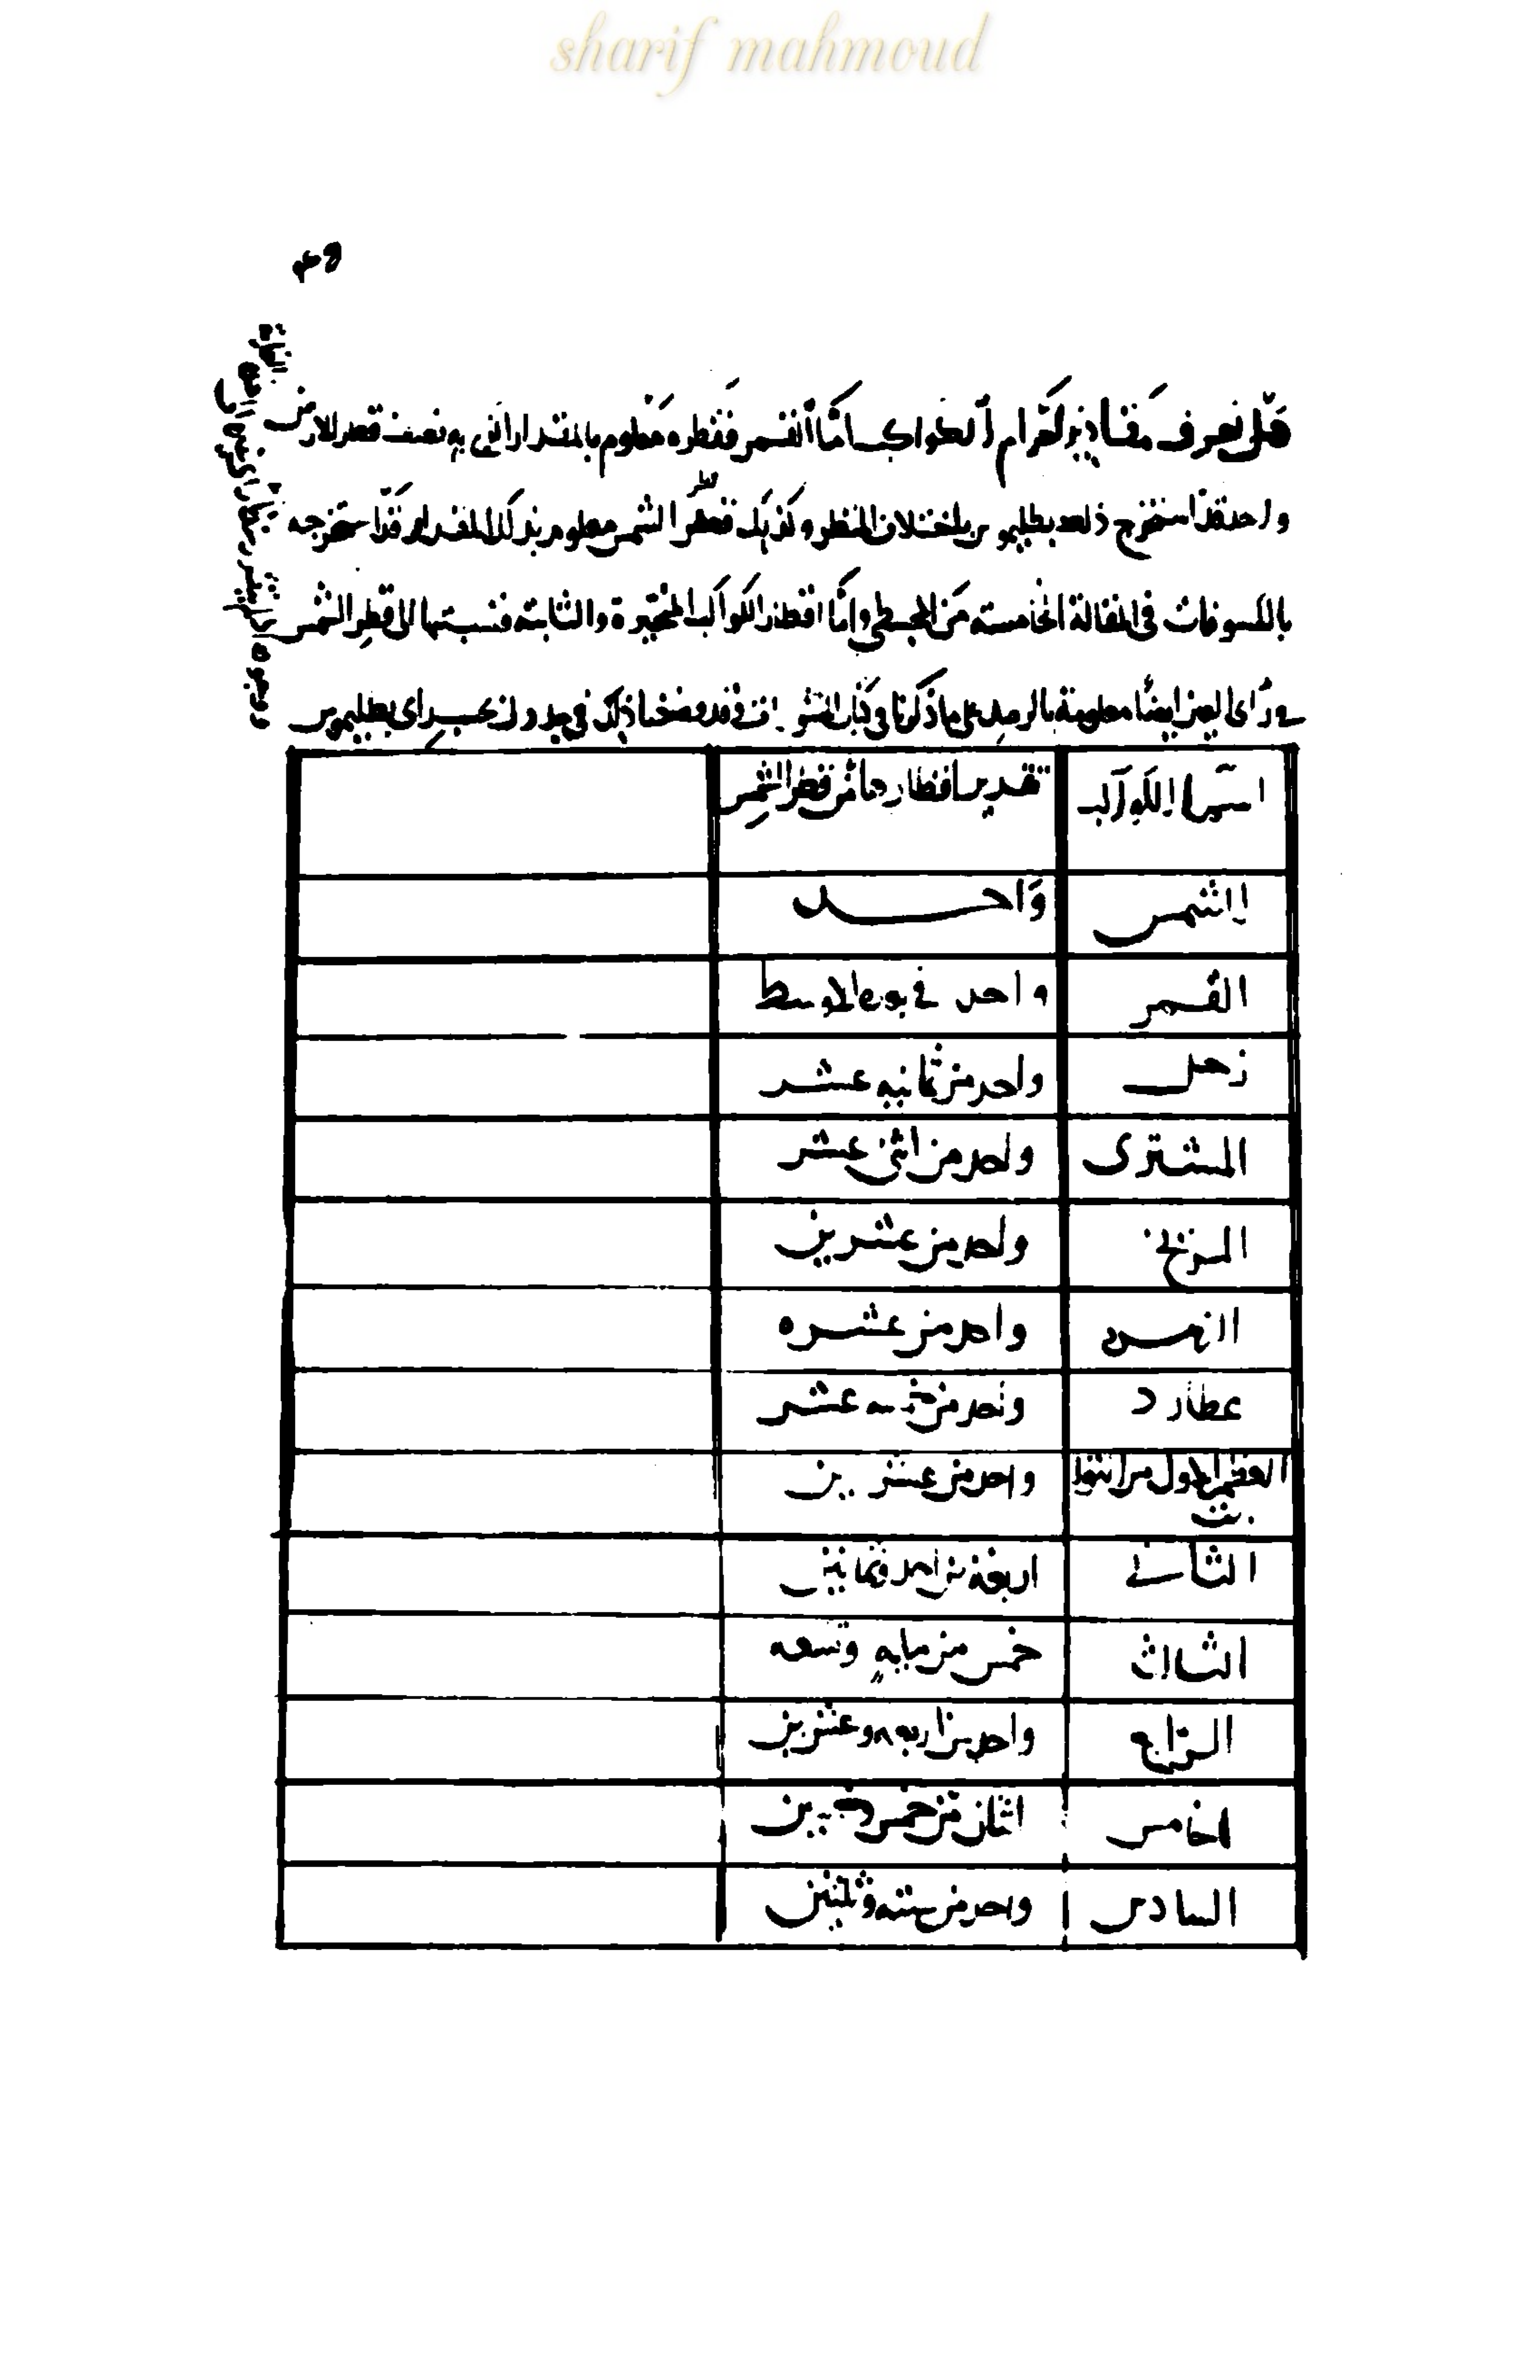 sharif mahmoud
مقادير اجرام الكواكب اما القمر فقطره معلوم بالمقدار الذي به نصف قطر الارض
واحد فقد استخرج ذلك بطلميوس باختلاف المنظر وكذلك قطر الشمس معلوم بذلك المقدار فقد استخرجه
بالكسوفات في المقالة الخامسة من المجسطي واما اقطار الكواكب المتحيرة والثابتة فنسبتها الى قطر الشمس
في راي العين ايضا معلومة بالرصد على ما ذكرنا في كتاب وقد وضحنا ذلك في جدول بحسب راي بطليموس
اسما الكواكب تقدير اقطارها من قطر الشمس
الشمس واحد
القمر واحد في بعده الاوسط
زحل واحد من ثمانيه عشر
المشترى واحد من اثنى عشر
المريخ واحد من عشرين
الزهره واحد من عشره
عطارد واحد من خمسه عشر
العظم الاول من الثوابت واحد من عشرين
الثاني اربعة من احد وثمانين
الثالث خمس من مايه وتسعه
الرابع واحد من اربعه وعشرين
الخامس اثنان من خمس
السادس واحد من سته وثلثين